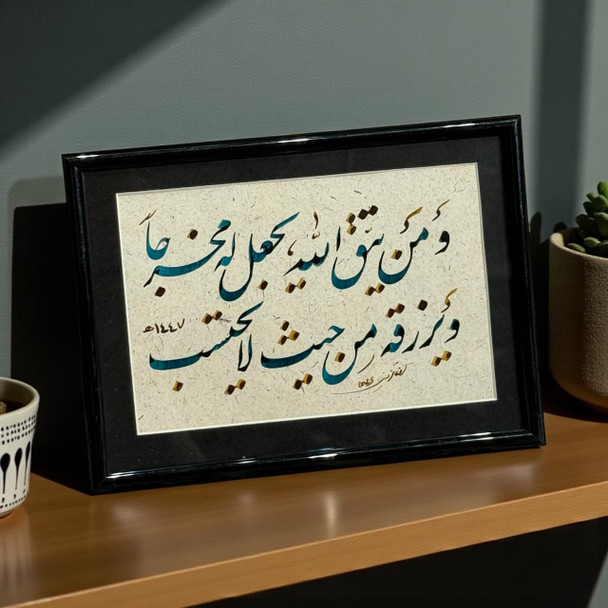 وَمَن يتق الله يجعل له مخرجاً
ويرزقه من حيث لا يحتسب
١٤٤٧هـ